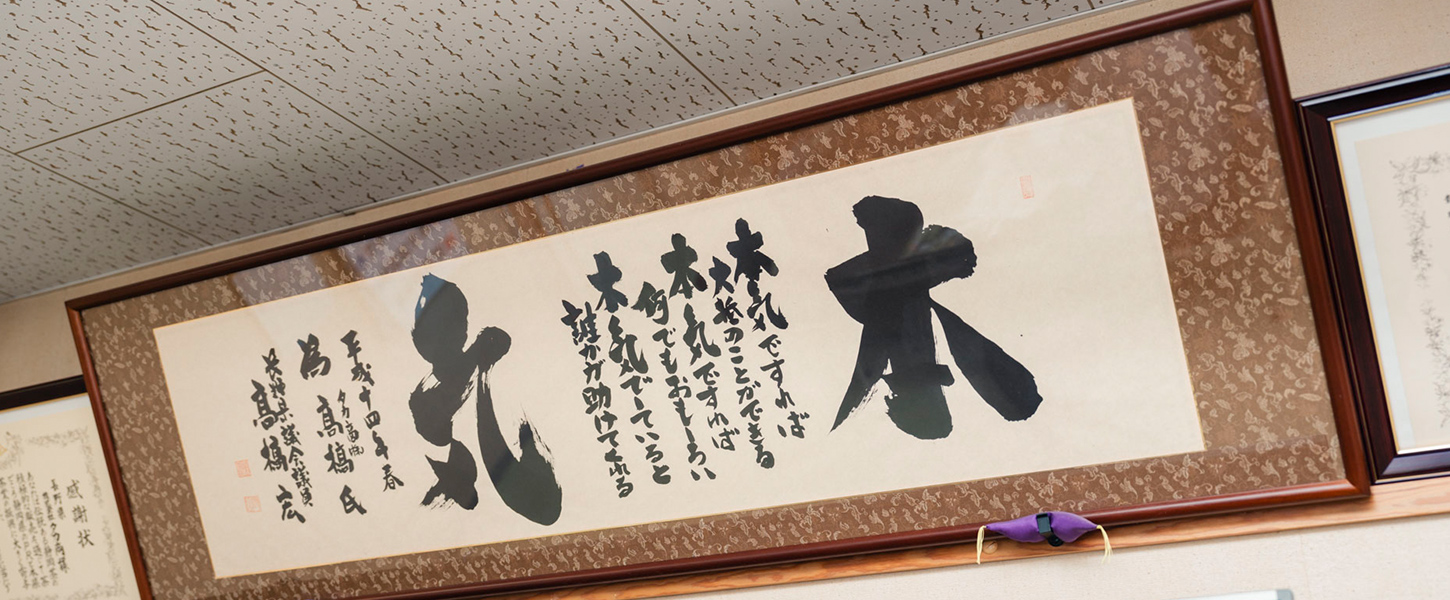 本
本気ですれば
大抵のことができる
本気ですれば
何でもおもしろい
本気でしていると
誰かが助けてくれる
気
平成十四年春
為 高橋 氏
長野県議会議員
高橋 宏
感謝状
長野県